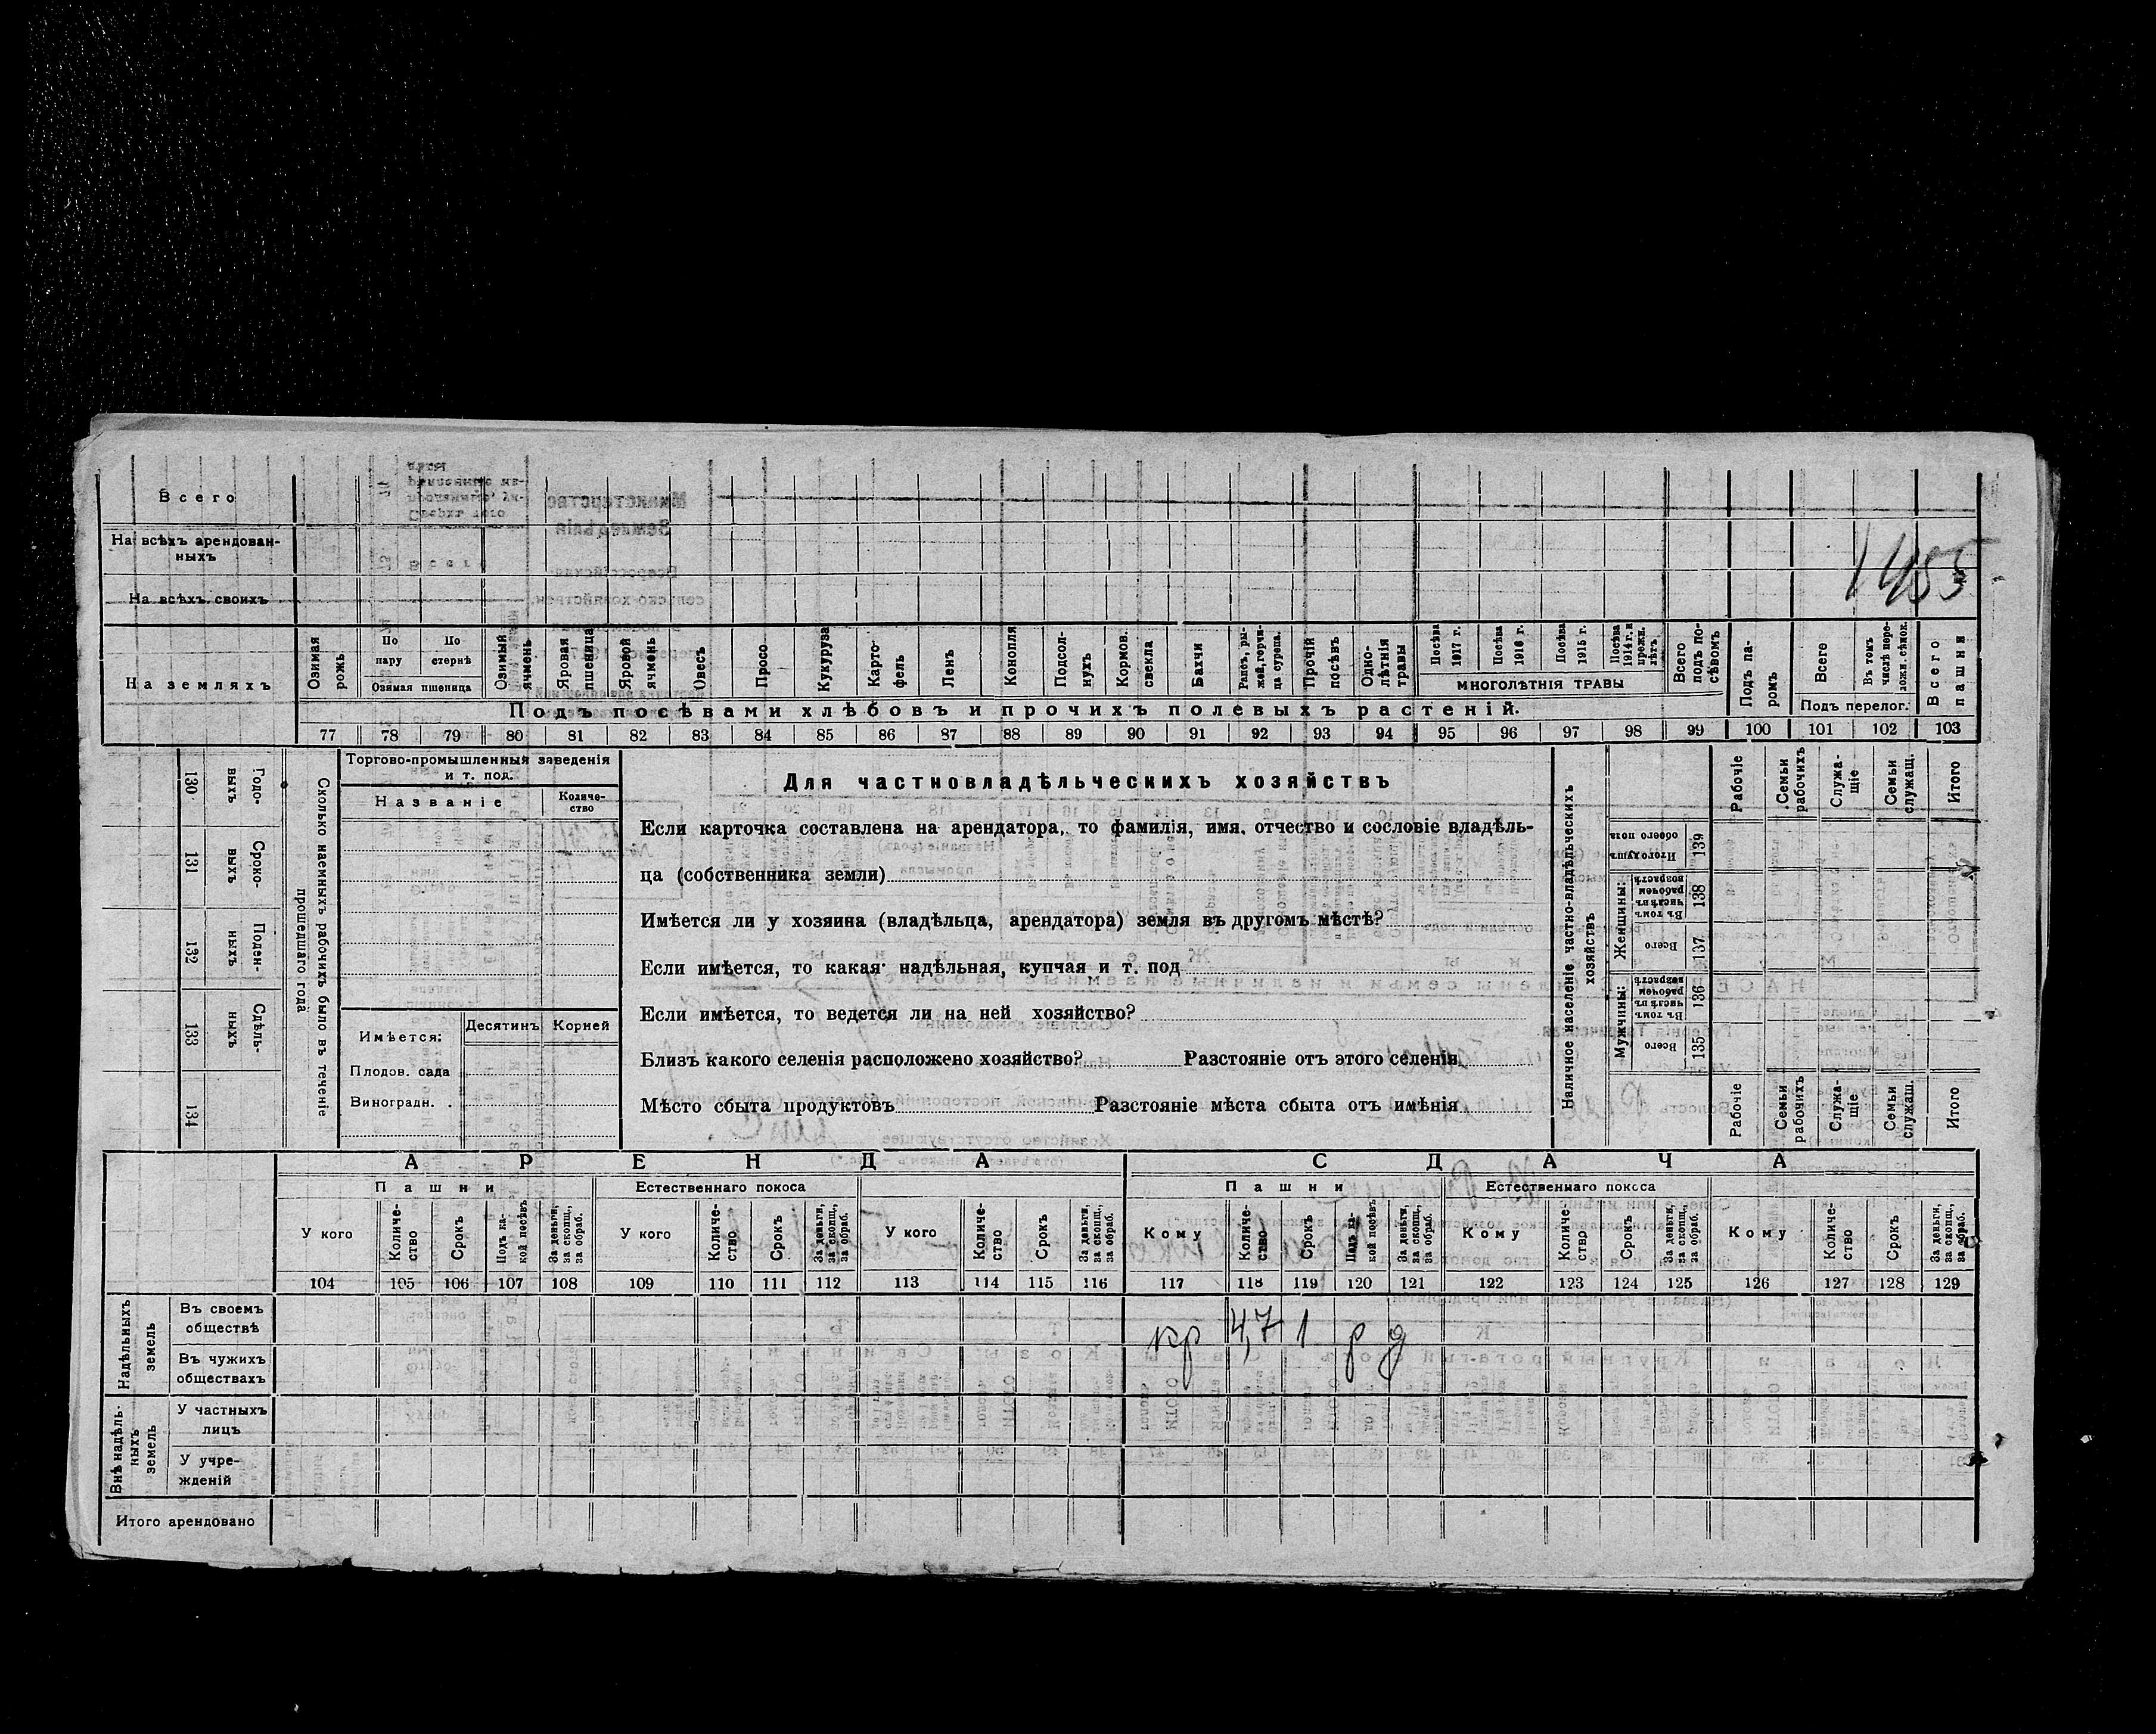 Всего
На всѣхъ арендован-
ныхъ
На всѣхъ своихъ
1455
На земляхъ
Озимая рожь
По пару
По стернѣ
Озимая пшеница
Озимый ячмень
Яровая пшеница
Яровой ячмень
Овесъ
Просо
Кукуруза
Карто-
фель
Ленъ
Конопля
Подсол-
нухъ
Кормов.
свекла
Бахчи
Рапсъ, ры-
жей, горчи-
ца сурепа.
Прочій
посѣвъ
Одно-
лѣтнія
травы
Посѣва
1917 г.
Посѣва
1916 г.
Посѣва
1915 г.
Посѣва
1914 г. и
прежн.
лѣтъ
МНОГОЛѢТНІЯ ТРАВЫ
Всего
подъ по-
сѣвомъ
Подъ па-
ромъ
Всего
Въ томъ
числѣ пере-
ложн. сѣнок.
Подъ перелог.
Всего
пашни
Подъ посѣвами хлѣбовъ и прочихъ полевыхъ растеній.
77 78 79 80 81 82 83 84 85 86 87 88 89 90 91 92 93 94 95 96 97 98 99 100 101 102 103
130 Годо-
выхъ
131 Сроко-
выхъ
132 Поден-
ныхъ
133 Сдѣль-
ныхъ
134
Сколько наемныхъ рабочихъ было въ теченіе
прошедшаго года
Торгово-промышленныя заведенія
и т. под.
Названіе
Количе-
ство
Имѣется:
Десятинъ
Корней
Плодов. сада
Виноградн. .
Для частновладѣльческихъ хозяйствъ
Если карточка составлена на арендатора, то фамилія, имя, отчество и сословіе владѣль-
ца (собственника земли)
Имѣется ли у хозяина (владѣльца, арендатора) земля въ другомъ мѣстѣ?
Если имѣется, то какая: надѣльная, купчая и т. под
Если имѣется, то ведется ли на ней хозяйство?
Близъ какого селенія расположено хозяйство? Разстояніе отъ этого селенія
Мѣсто сбыта продуктовъ Разстояніе мѣста сбыта отъ имѣнія
Наличное населеніе частно-владѣльческихъ
хозяйствъ
Рабочіе
Семьи
рабочихъ
Служа-
щіе
Семьи
служащ.
Итого
Итого душъ
обоего пола
139
Женщины:
Въ томъ
числѣ въ
рабочемъ
возрастѣ
138
Всего
137
Мужчины:
Въ томъ
числѣ въ
рабочемъ
возрастѣ
136
Всего
135
Рабочіе
Семьи
рабочихъ
Служа-
щіе
Семьи
служащ.
Итого
АРЕНДА
СДАЧА
Пашни
Естественнаго покоса
Пашни
Естественнаго покоса
У кого
Количе-
ство
Срокъ
Подъ ка-
кой посѣвъ
За деньги,
за скопщ.,
за обраб.
У кого
Количе-
ство
Срокъ
За деньги,
за скопщ.,
за обраб.
У кого
Количе-
ство
Срокъ
За деньги,
за скопщ.,
за обраб.
Кому
Количе-
ство
Срокъ
Подъ ка-
кой посѣвъ
За деньги,
за скопщ.,
за обраб.
Кому
Количе-
ство
Срокъ
За деньги,
за скопщ.,
за обраб.
Кому
Количе-
ство
Срокъ
За деньги,
за скопщ.,
за обраб.
104 105 106 107 108 109 110 111 112 113 114 115 116 117 118 119 120 121 122 123 124 125 126 127 128 129
Надѣльныхъ
земель
Въ своемъ
обществѣ
кр 4,7 1 р д
Въ чужихъ
обществахъ
Внѣ надѣль-
ныхъ
земель
У частныхъ
лицъ
У учре-
жденій
Итого арендовано